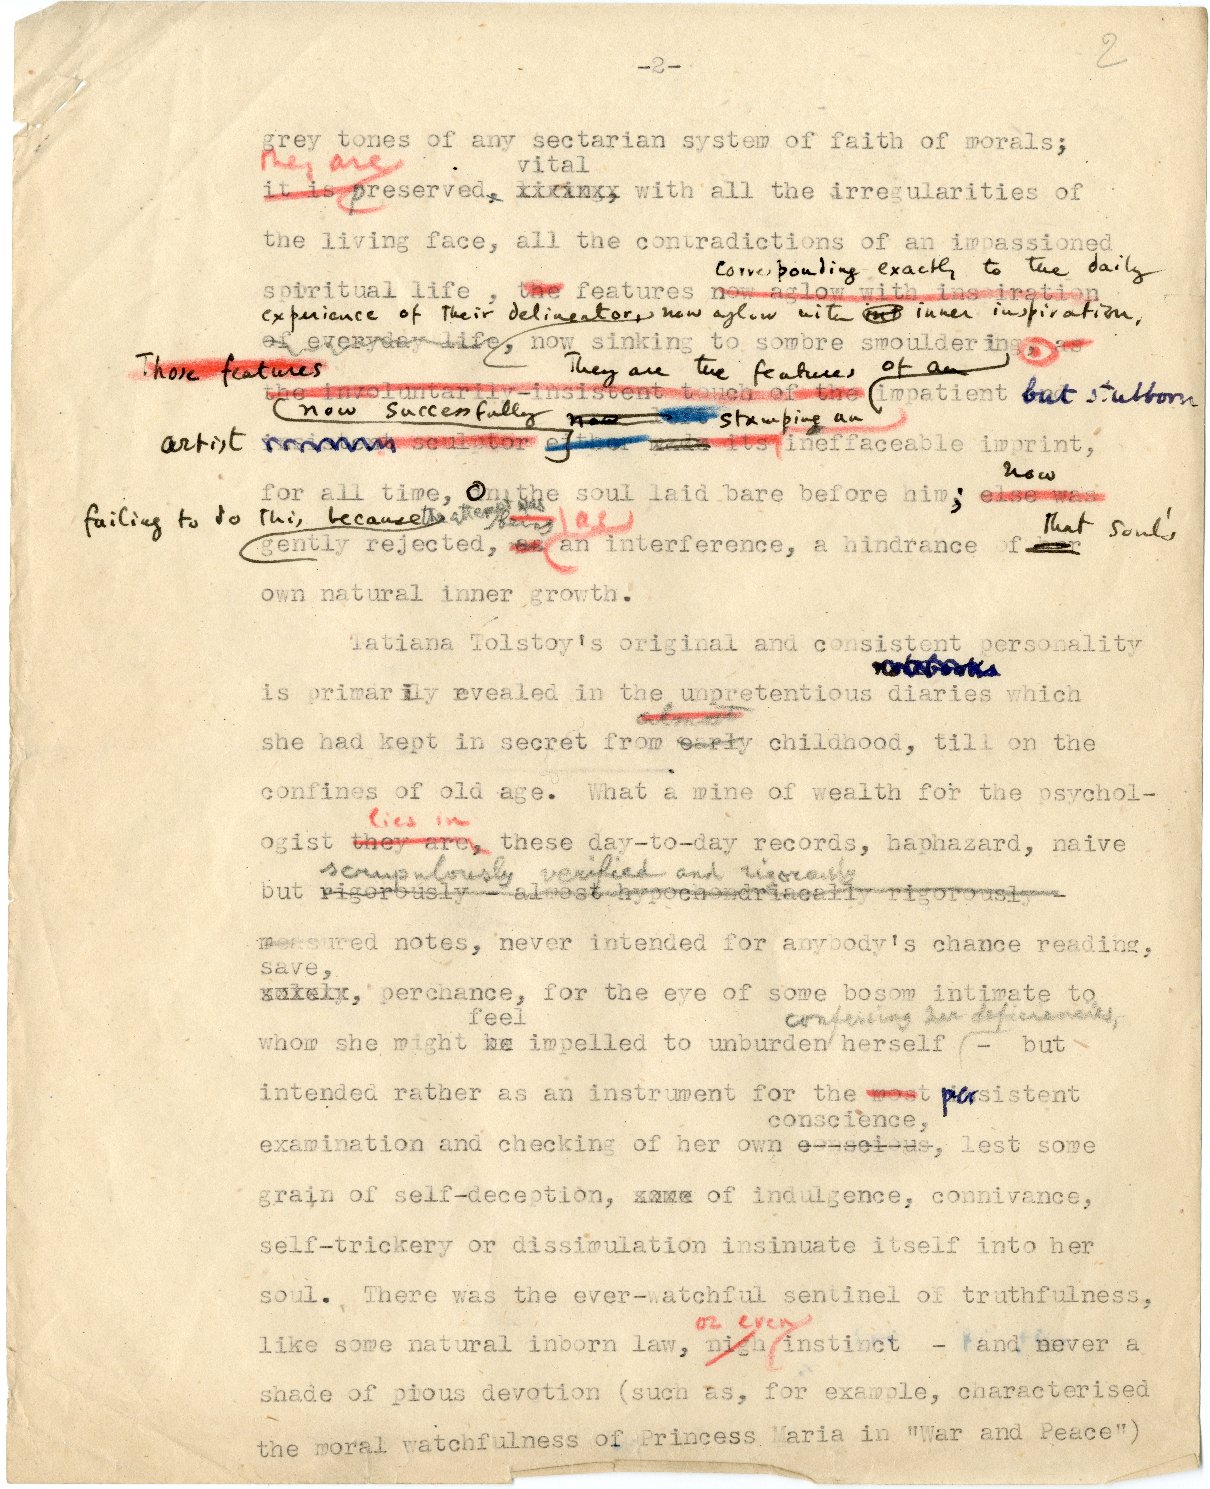 2
-2-
grey tones of any sectarian system of faith of morals;
they are vital
it is preserved, with all the irregularities of
the living face, all the contradictions of an impassioned
corresponding exactly to the daily
spiritual life , the features now aglow with inspiration
experience of their delineator, now aglow with inner inspiration,
of everyday life, now sinking to sombre smouldering, as
Those features They are the features of an
the involuntarily-insistent touch of the impatient but stubborn
now successfully now stamping an
artist sculptor either made its ineffaceable imprint,
now
for all time, on the soul laid bare before him; else was
failing to do this, because the attempt was being as that soul's
gently rejected, as an interference, a hindrance of her
own natural inner growth.
Tatiana Tolstoy's original and consistent personality
notebooks
is primarily revealed in the unpretentious diaries which
almost
she had kept in secret from early childhood, till on the
confines of old age. What a mine of wealth for the psychol-
lies in
ogist they are, these day-to-day records, haphazard, naive
scrupulously verified and rigorously
but rigorously - almost hypochondriacally rigorously -
measured notes, never intended for anybody's chance reading,
save,
solely, perchance, for the eye of some bosom intimate to
feel confessing her deficiencies,
whom she might be impelled to unburden herself - but
intended rather as an instrument for the most persistent
conscience,
examination and checking of her own conscious, lest some
grain of self-deception, some of indulgence, connivance,
self-trickery or dissimulation insinuate itself into her
soul. There was the ever-watchful sentinel of truthfulness,
or even
like some natural inborn law, nigh instinct - and never a
shade of pious devotion (such as, for example, characterised
the moral watchfulness of Princess Maria in "War and Peace")